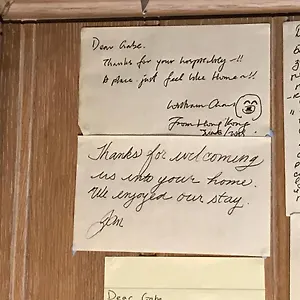 Dear Gabe.
Thanks for your hospitality -!!
A place just feel like Home~!!
From Hong Kong
Thanks for welcoming
us into your home.
We enjoyed our stay.
Dear Gabe